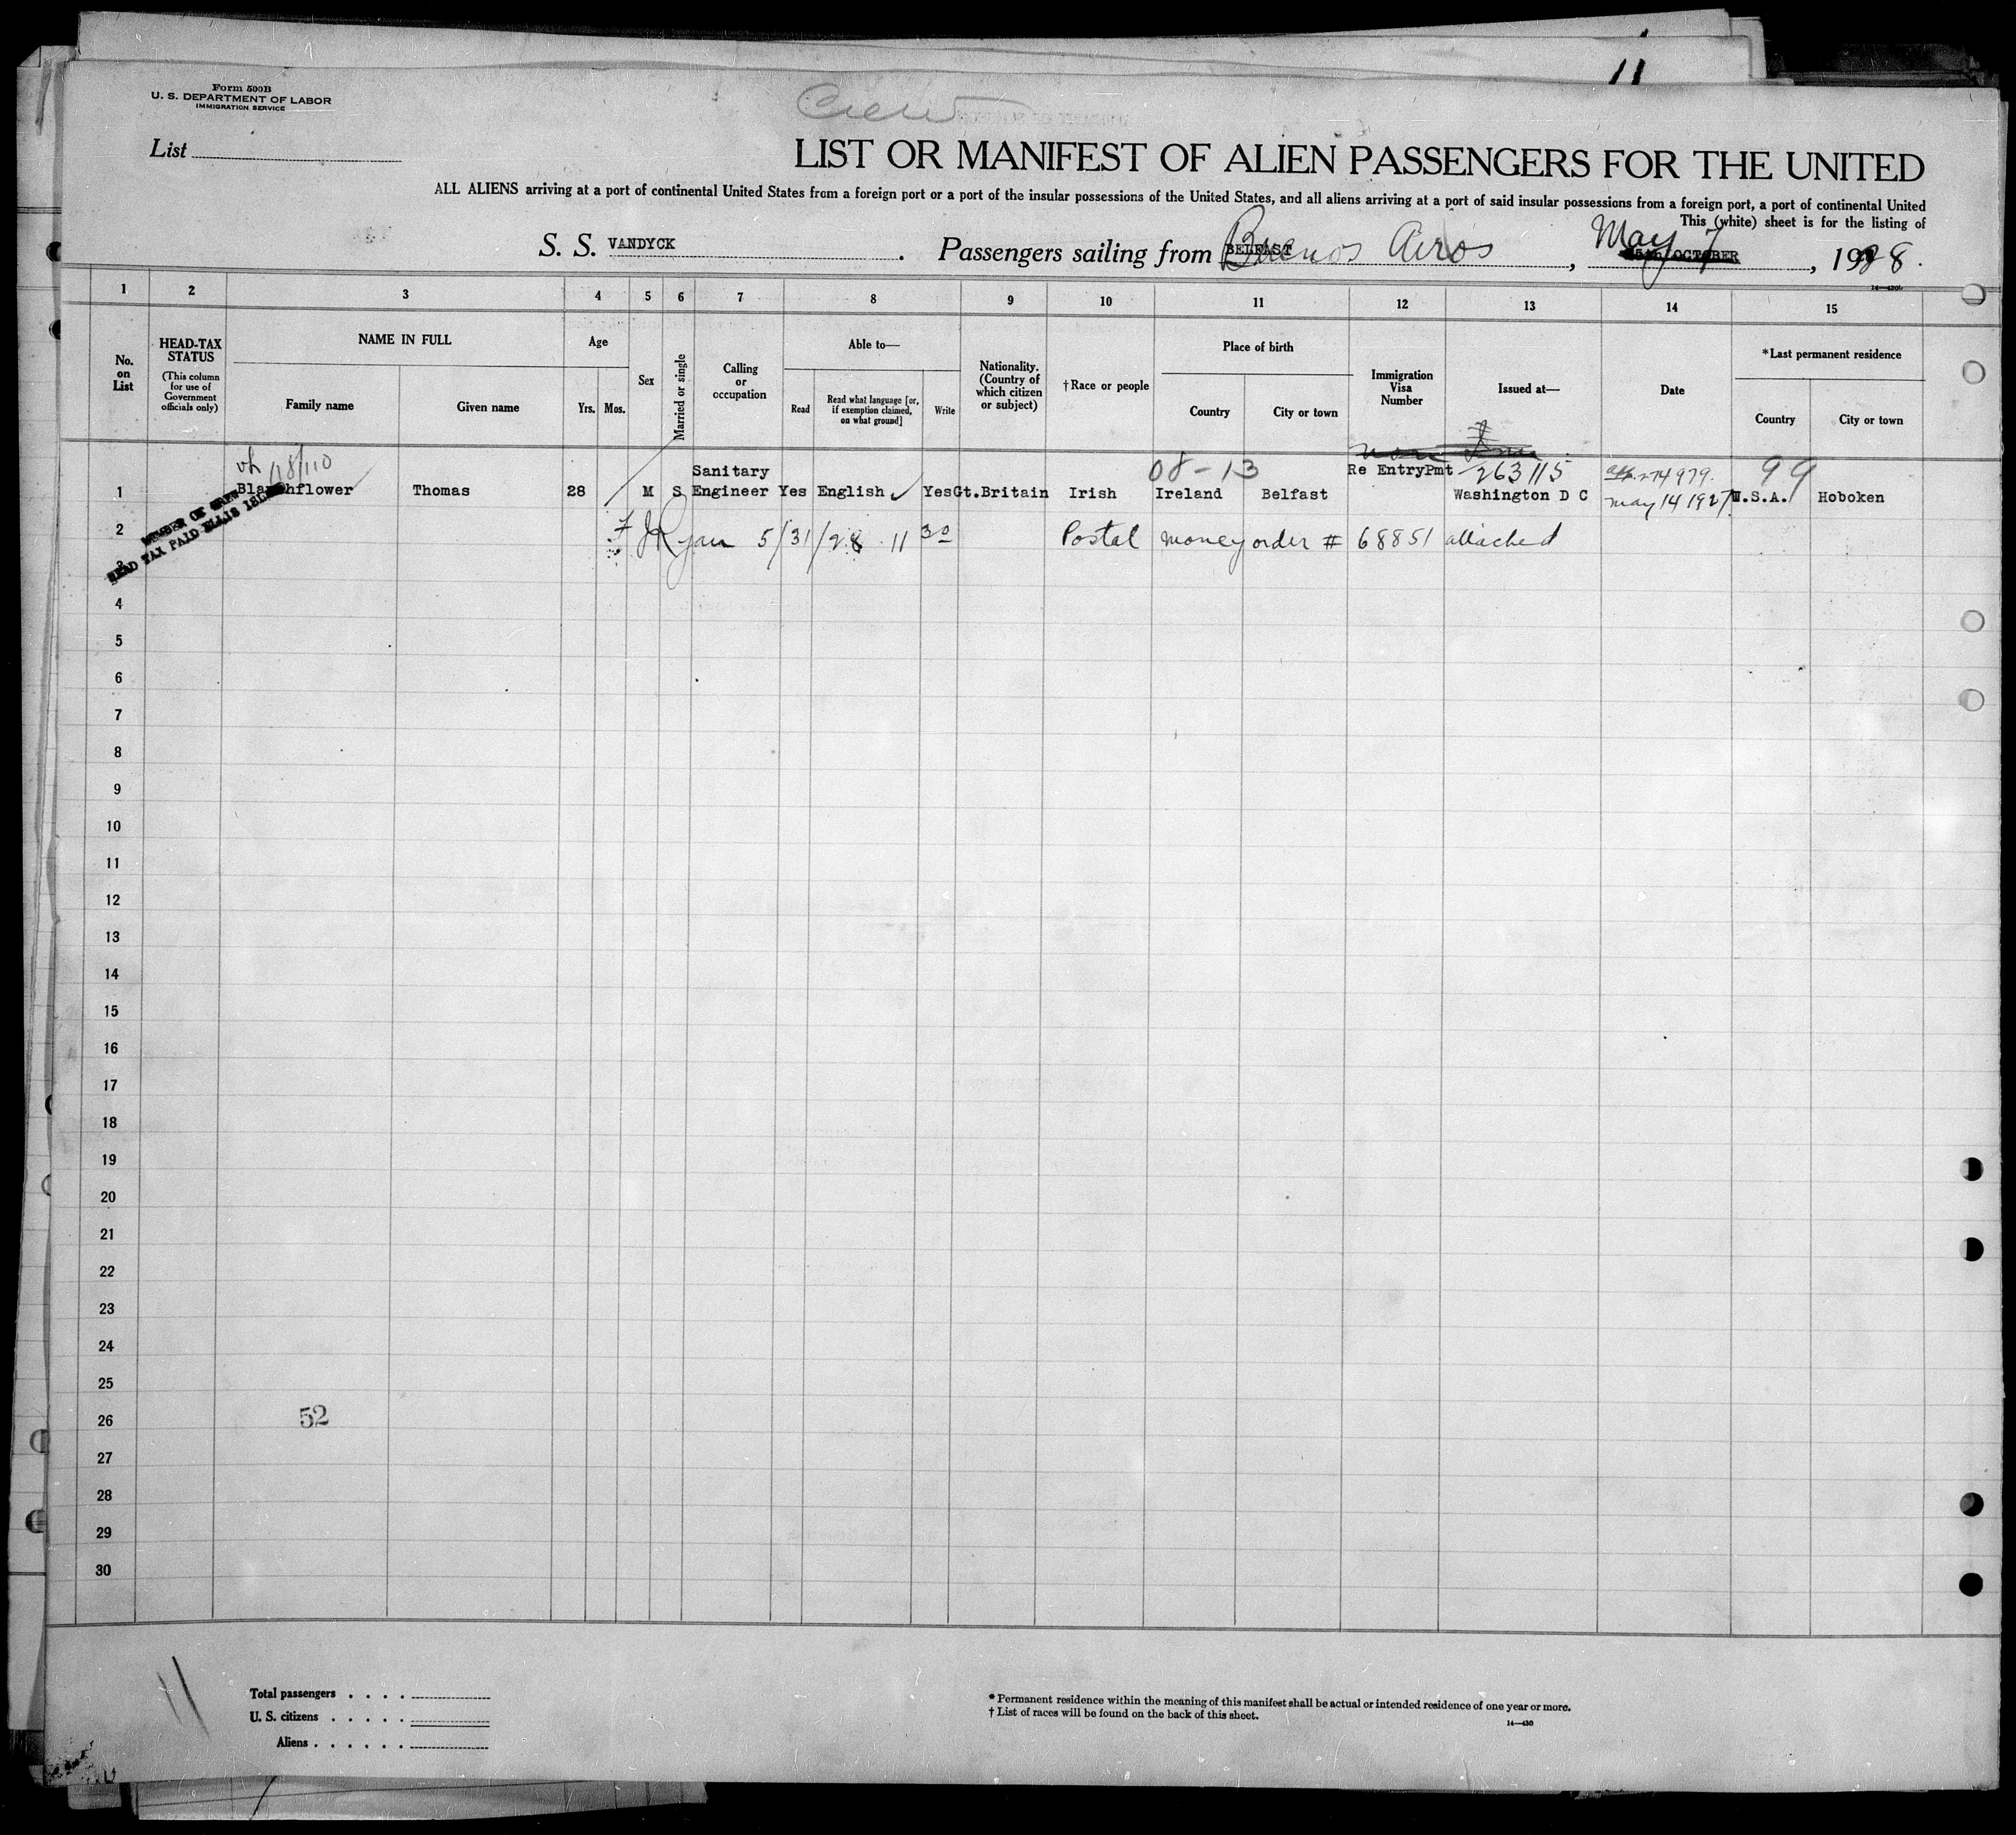 11
Form 500B
U. S. DEPARTMENT OF LABOR
IMMIGRATION SERVICE
Crew
List
LIST OR MANIFEST OF ALIEN PASSENGERS FOR THE UNITED
ALL ALIENS arriving at a port of continental United States from a foreign port or a port of the insular possessions of the United States, and all aliens arriving at a port of said insular possessions from a foreign port, a port of continental United
This (white) sheet is for the listing of
S. S. VANDYCK . Passengers sailing from BELFAST Buenos Aires , May 7 15th OCTOBER , 1928.
14—430
1 2 3 4 5 6 7 8 9 10 11 12 13 14 15
No. on List
HEAD-TAX STATUS
(This column for use of Government officials only)
NAME IN FULL
Family name
Given name
Age
Yrs. Mos.
Sex
Married or single
Calling or occupation
Able to—
Read
Read what language [or, if exemption claimed, on what ground]
Write
Nationality. (Country of which citizen or subject)
†Race or people
Place of birth
Country
City or town
Immigration Visa Number
Issued at—
Date
*Last permanent residence
Country
City or town
Sanitary 08-13 Re EntryPmt 263115 274979. 99
1 Blanchflower Thomas 28 M S Engineer Yes English ✓ Yes Gt.Britain Irish Ireland Belfast Washington D C May 14 1927 U.S.A. Hoboken
MEMBER OF CREW
HEAD TAX PAID ELLIS ISLAND
2 F J Ryan 5/31/28 11 30 Postal money order # 68851 attached
3
4
5
6
7
8
9
10
11
12
13
14
15
16
17
18
19
20
21
22
23
24
25
26 52
27
28
29
30
11
Total passengers . . . .
U. S. citizens . . . . .
Aliens . . . . . .
* Permanent residence within the meaning of this manifest shall be actual or intended residence of one year or more.
† List of races will be found on the back of this sheet.
14—430